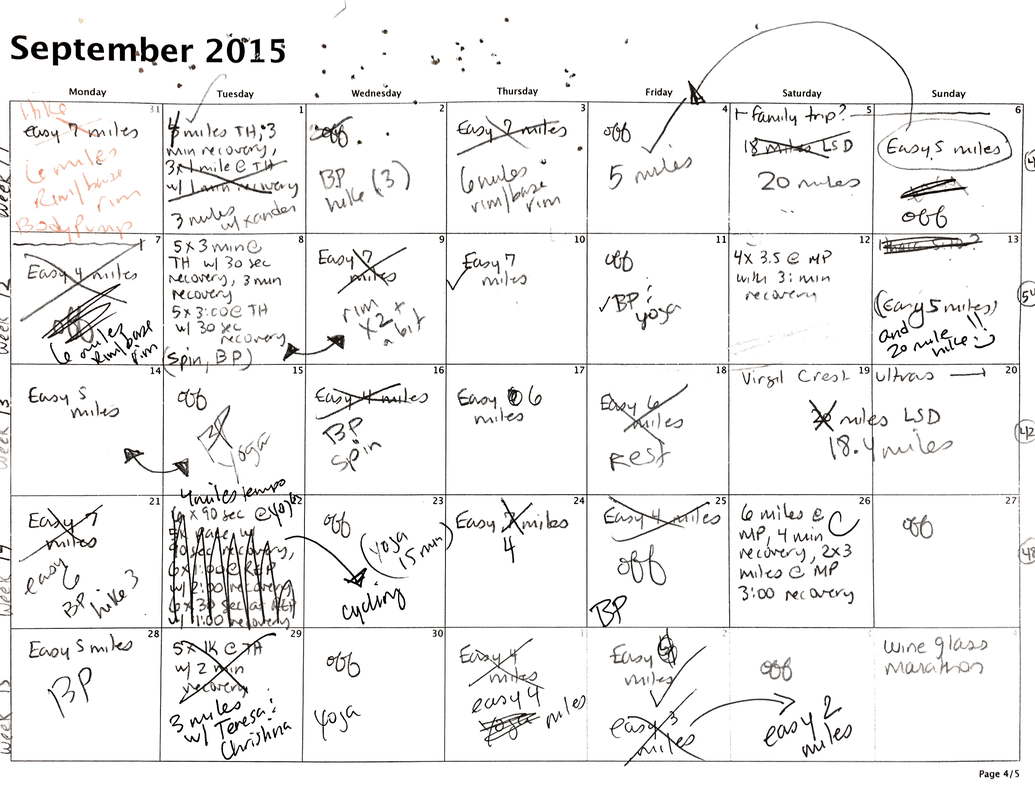 September 2015
Monday Tuesday Wednesday Thursday Friday Saturday Sunday
Week 11
31
Hike
easy 7 miles
6 miles
Rim/base
rim
Body Pump
1
miles TH, 3
min recovery,
3x1 mile @ TH
w/ 1 min recovery
3 miles
w/ xander
2
off
BP
hike (3)
3
Easy 7 miles
6 miles
rim/base
rim
4
off
5 miles
5
Family trip?
18 miles LSD
20 miles
6
Easy 5 miles
off
Week 12
7
Easy 4 miles
off
6 miles
Rim/base
rim
8
5 x 3 min @
TH w/ 30 sec
recovery, 3 min
recovery
5 x 3:00 @ TH
w/ 30 sec
recovery
(spin, BP)
9
Easy 7
miles
rim
x2 +
a bit
10
Easy 7
miles
11
off
BP
yoga
12
4x 3.5 @ MP
with 3: min
recovery
13
(Easy 5 miles)
and
20 mile
hike!!
Week 13
14
Easy 5
miles
15
off
BP
yoga
16
Easy 4 miles
BP
spin
17
Easy 6
miles
18
Easy 6
miles
Rest
19
Virgil Crest
20
Ultras
20 miles LSD
18.4 miles
42
Week 14
21
Easy 7
miles
easy
6
BP hike 3
22
4 miles tempo
6 x 90 sec @
yoga
90 sec recovery,
6 x 1:00 @ REP
w/ 2:00 recovery
6 x 30 sec at REP
w/ 1:00 recovery
23
off
(yoga
15 min)
cycling
24
Easy 7 miles
4
25
Easy 4 miles
off
BP
26
6 miles @
MP, 4 min
recovery, 2x3
miles @ MP
3:00 recovery
27
off
48
Week 15
28
Easy 5 miles
BP
29
5 x 1K @ TH
w/ 2 min
recovery
3 miles
w/ Teresa :
Christina
30
off
yoga
1
Easy 4
miles
easy 4
miles
yoga
2
Easy
miles
easy 3
miles
3
off
easy 2
miles
4
wine glass
marathon
Page 4/5